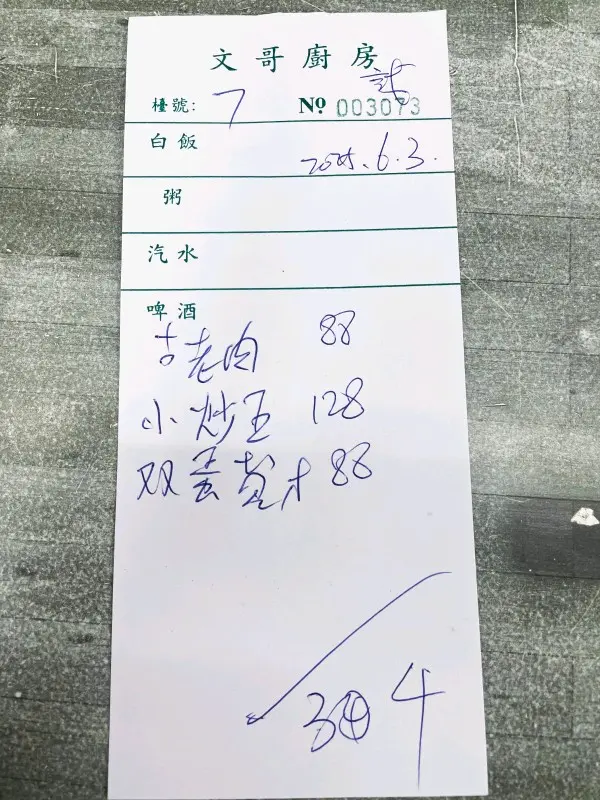 文哥廚房
檯號: 7 Nº 003073
白飯 2025.6.3.
粥
汽水
啤酒
古老肉 88
小炒王 128
双蛋莧才 88
304